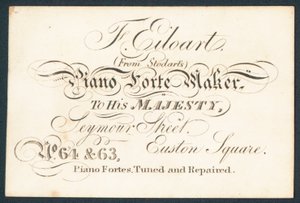 F. Eloart,
(From Stodarts)
Piano Forte Maker.
To His MAJESTY,
Seymour Street.
Nº 64 & 63, Euston Square.
Piano Fortes, Tuned and Repaired.